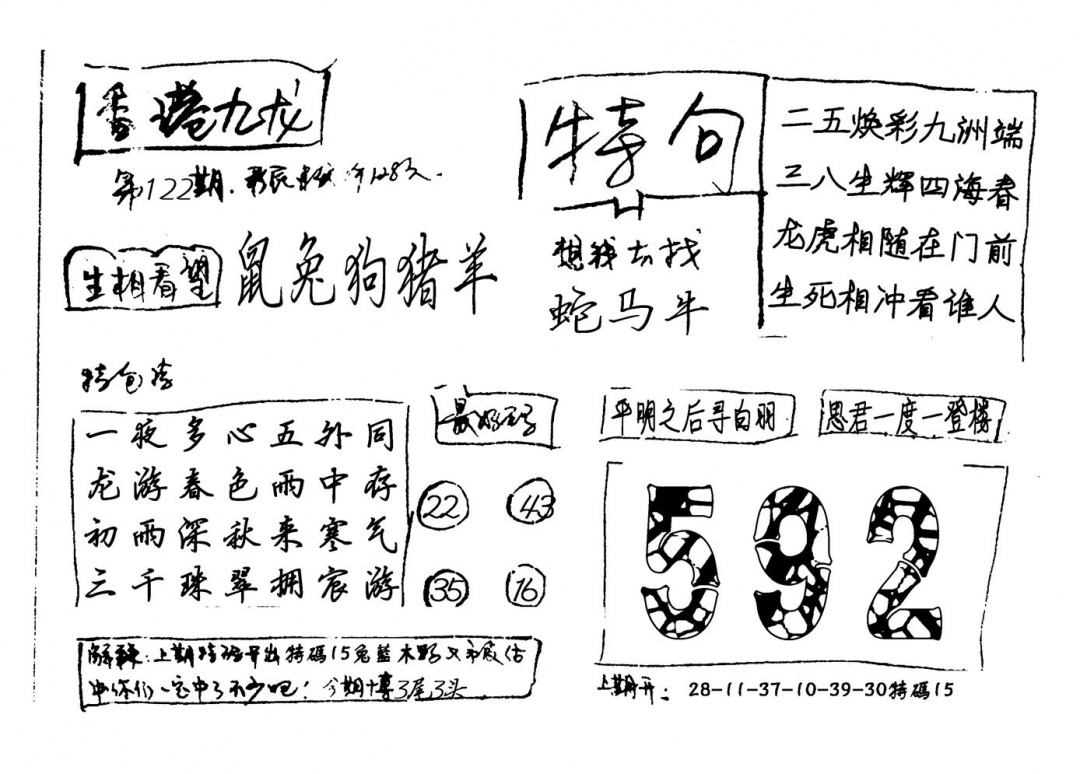 香港九龙
第122期
生相看望
鼠兔狗猪羊
特句
想我去找
蛇马牛
二五焕彩九洲端
三八生辉四海春
龙虎相随在门前
生死相冲看谁人
特包诗
一夜多心五外同
龙游春色雨中存
初雨深秋来寒气
三千珠翠拥宸游
最好码
22 43
35 16
平明之后寻白羽
思君一度一登楼
592
解释：上期特码开出特碼15兔蓝木野又
中你们一定中了不少吧！今期博3尾3头
上期开：28-11-37-10-39-30特碼15